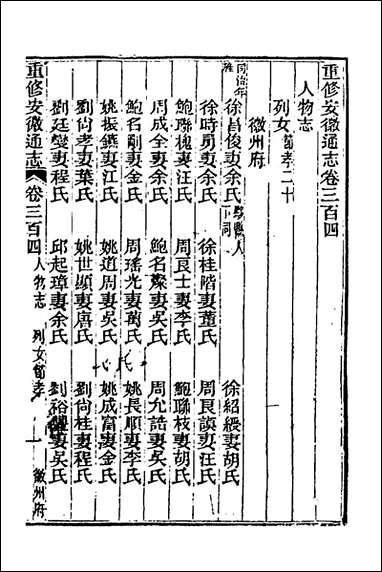 重修安徽通志卷三百四
人物志
列女 節孝二十
徽州府
徐昌俊妻余氏 黟縣人下同 徐紹綬妻胡氏
徐時勇妻余氏 徐桂階妻董氏 周良謨妻汪氏
鮑聯槐妻汪氏 周良士妻李氏 鮑聯枝妻胡氏
周成全妻余氏 鮑名粲妻吳氏 周允誥妻吳氏
鮑名剛妻金氏 周瑤光妻萬氏 姚長順妻李氏
姚振鐮妻江氏 姚道周妻吳氏 姚成富妻金氏
劉尚孝妻葉氏 姚世顯妻唐氏 劉尚桂妻程氏
劉廷燮妻程氏 邱起璋妻余氏 劉裕妻吳氏
重修安徽通志 卷三百四 人物志 列女節孝 一 徽州府